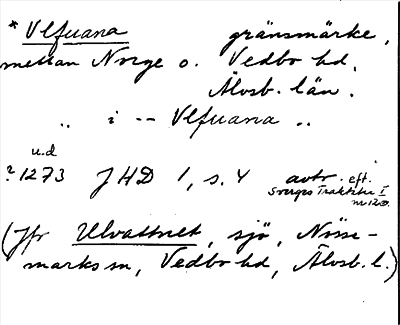 *Vlfuana gränsmärke,
mellan Norge o. Vedbo hd,
Älvsb. län.
.. i -- Vlfuana ..
u.d
?1273 JHD 1, s. 4 avtr. eft.
Sverges Traktater I
nr 123.
(Jfr Ulvattnet, sjö, Nösse-
marks sn, Vedbo hd, Älvsb. l.)